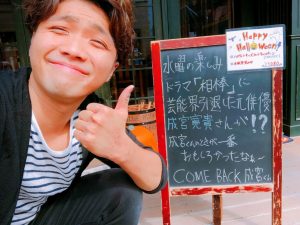 Happy
Halloween!
水曜の楽しみ
ドラマ「相棒」に
芸能界引退した元俳優
成宮寛貴さんが!?
成宮くんときが一番
おもしろかったなぁ〜
COME BACK 成宮くん